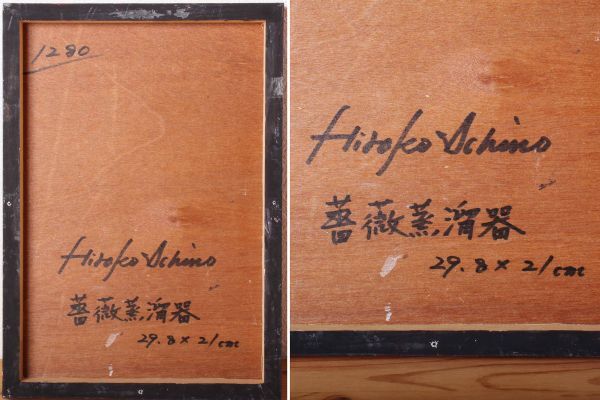 1280
Hiroko Ichino
薔薇蒸溜器
29.8×21cm
Hiroko Ichino
薔薇蒸溜器
29.8×21cm